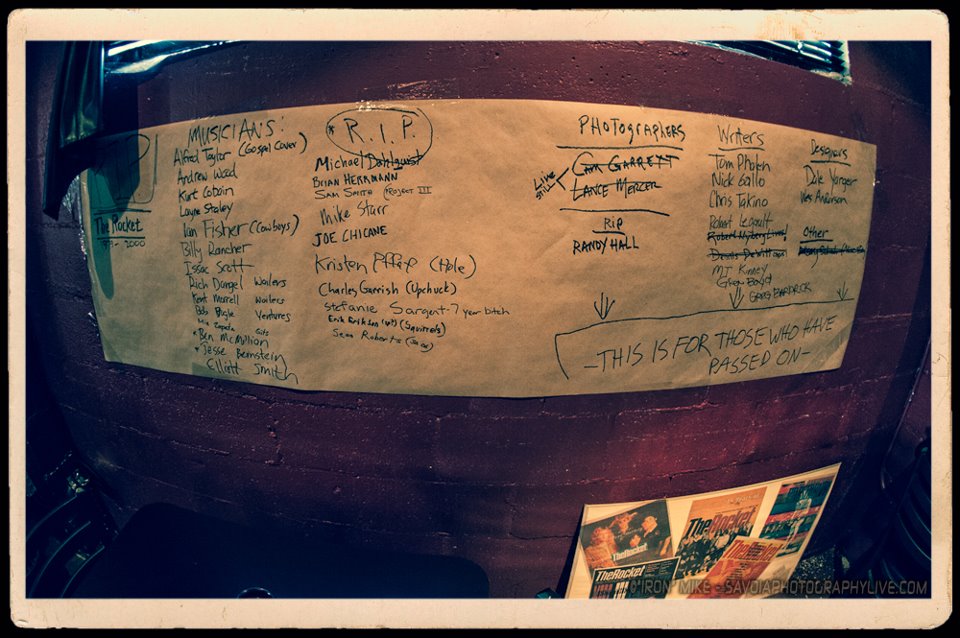 The Rocket
2000
MUSICIANS:
Alfred Taylor (Gospel Cover)
Andrew Wood
Kurt Cobain
Layne Staley
Ian Fisher (Cowboys)
Billy Rancher
Issac Scott
Rich Dangel Wailers
Kent Morrill Wailers
Bob Bogle Ventures
Mia Zapata Gits
*Ben McMillion
*Jesse Bernstein
Elliott Smith
*R.I.P.
Michael Dahlquist
BRIAN HERRMANN
SAM SMITH PROJECT III
Mike Starr
JOE CHICANE
Kristen Pfaff (Hole)
Charles Gerrish (Upchuck)
Stefanie Sargent-7 year bitch
Sean Roberts
PHOTOGRAPHERS
Live
CAM GARRETT
LANCE MERCER
RIP
RANDY HALL
Writers
Tom Phalen
Nick Gallo
Chris Takino
Robert Legault
MJ Kinney
Glen Boyd
GREG BARDRICK
Designers
Dale Yarger
Wes Anderson
Other
-THIS IS FOR THOSE WHO HAVE
PASSED ON-
TheRocket
TheRocket
TheRocket
TheRocket
©"IRON" MIKE - SAVOIAPHOTOGRAPHYLIVE.COM